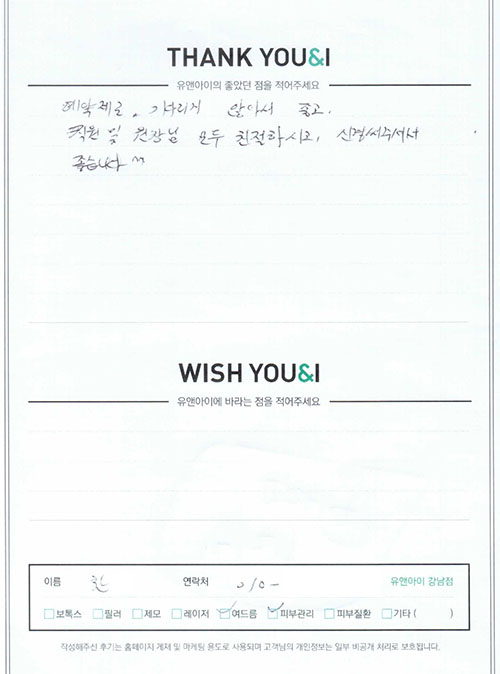 THANK YOU&I
유앤아이의 좋았던 점을 적어주세요
예약제로, 기다리게 않아서 좋고,
직원 및 원장님 모두 친절하시고, 신경써주셔서
좋습니다 ^^
WISH YOU&I
유앤아이에 바라는 점을 적어주세요
이름 연락처 010- 유앤아이 강남점
보톡스 필러 제모 레이저 여드름 피부관리 피부질환 기타 ( )
작성해주신 후기는 홈페이지 게재 및 마케팅 용도로 사용되며 고객님의 개인정보는 일부 비공개 처리로 보호됩니다.